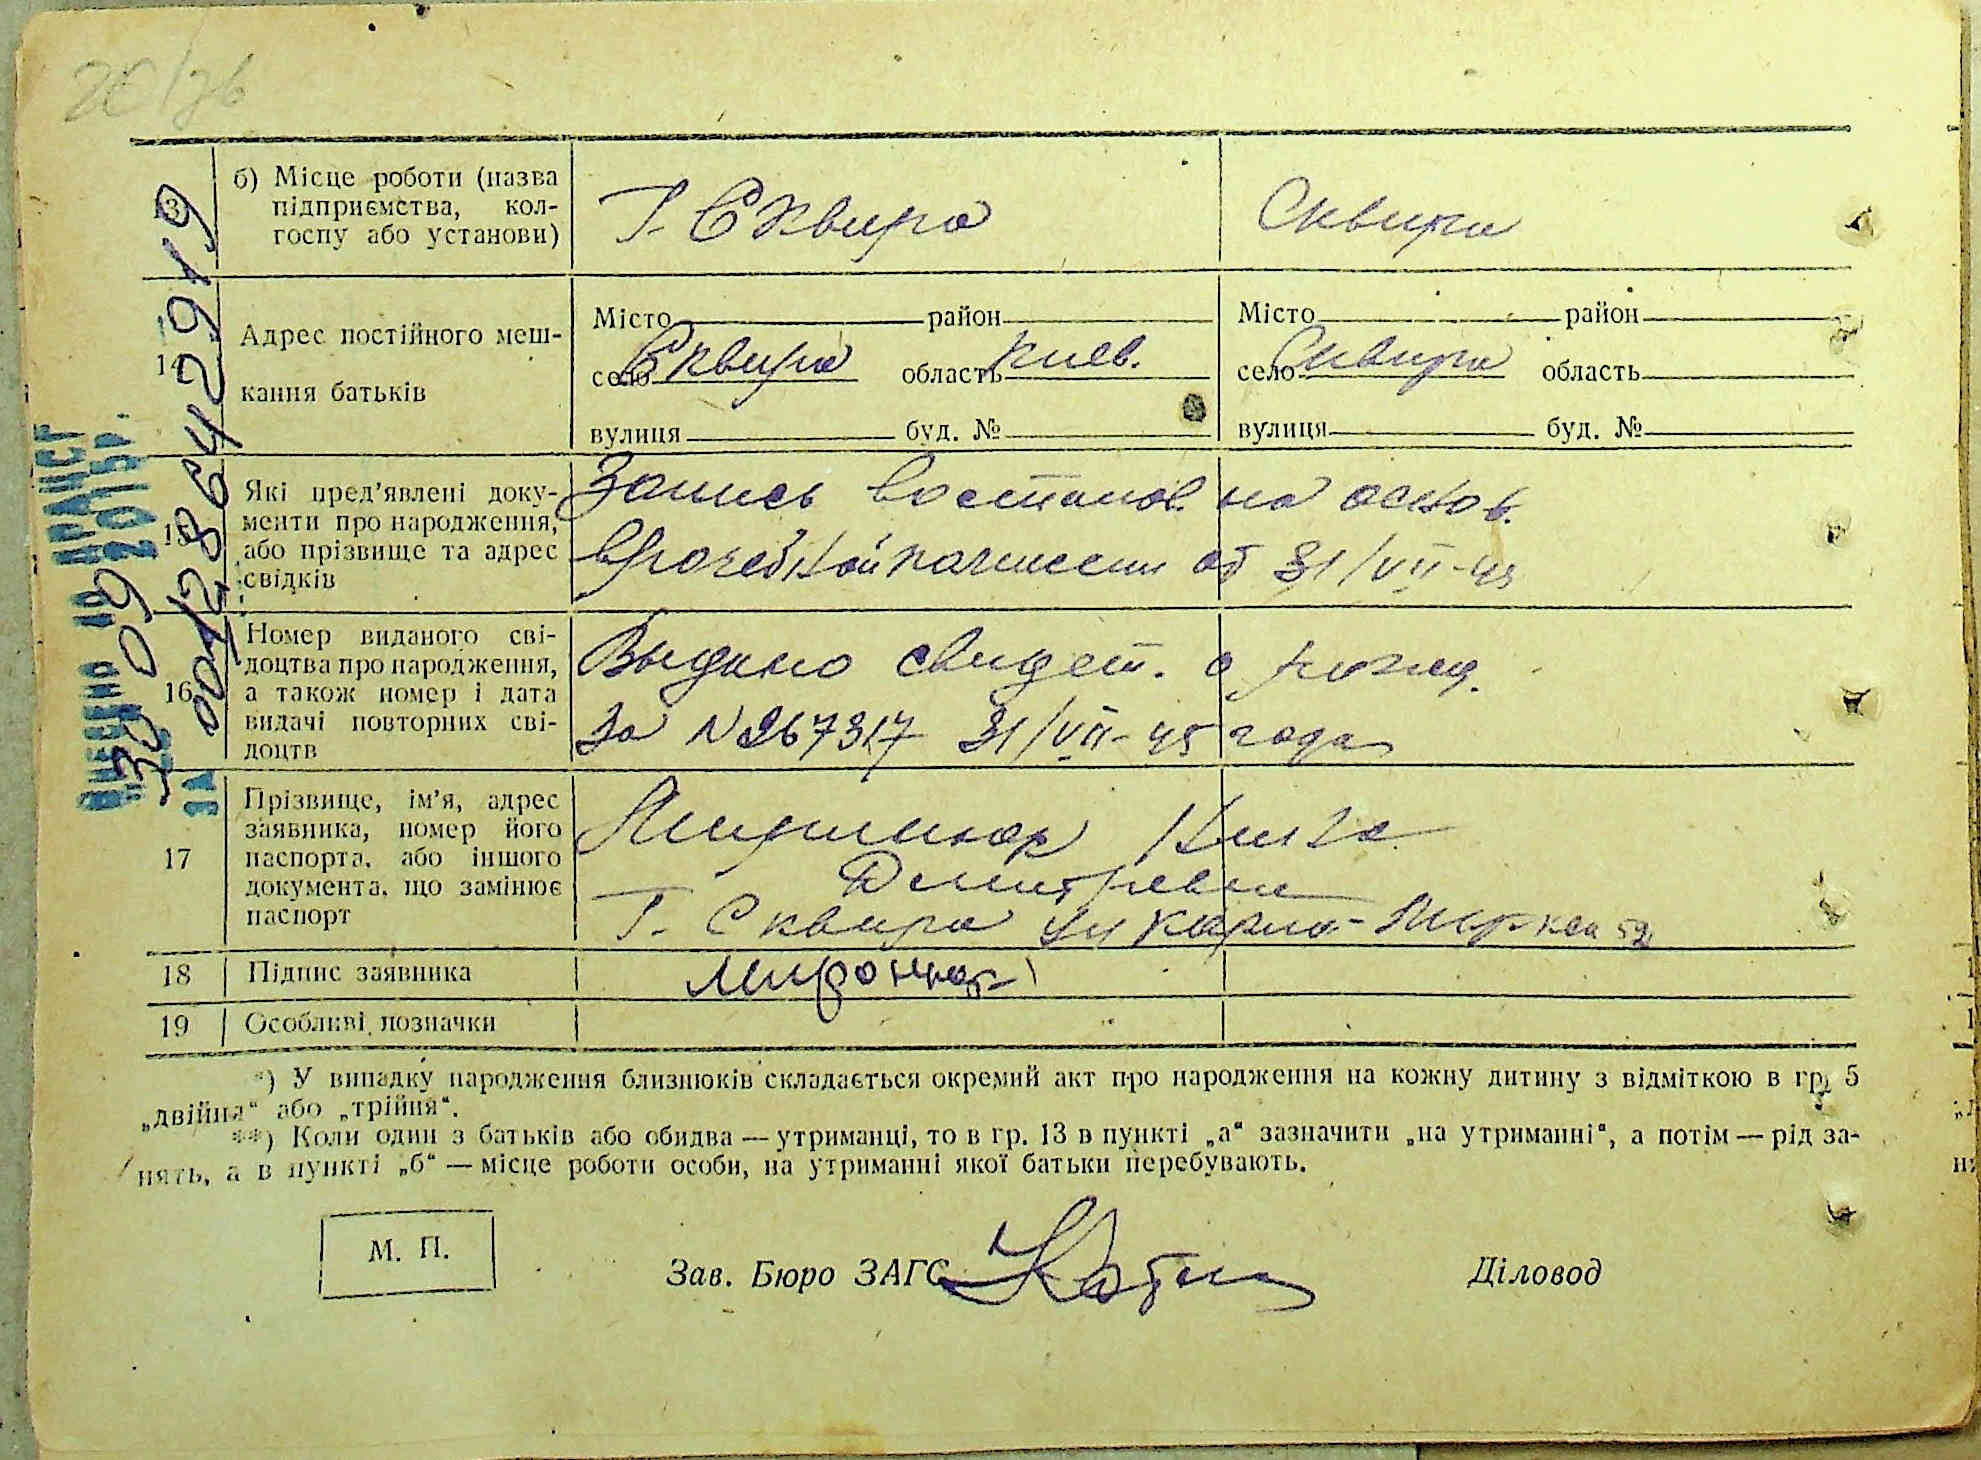 13
б) Місце роботи (назва
підприємства, кол-
госпу або установи)
г. Сквира
Сквира
14
Адрес постійного меш-
кання батьків
Місто район
село Сквира область Киев.
вулиця буд. №
Місто район
село Сквира область
вулиця буд. №
15
Які пред’явлені доку-
менти про народження,
або прізвище та адрес
свідків
Запись востанов. на основ.
врачебной от 31/VII-45
16
Номер виданого сві-
доцтва про народження,
а також номер і дата
видачі повторних сві-
доцтв
Выдано свидет. о рожд.
за N 267317 31/VII-45 года
17
Прізвище, ім’я, адрес
заявника, номер його
паспорта, або іншого
документа, що замінює
паспорт
Дмитревна
г. Сквира ул Карла-Маркса 52
18
Підпис заявника
19
Особливі позначки
*) У випадку народження близнюків складається окремий акт про народження на кожну дитину з відміткою в гр. 5
„двійня“ або „трійня“.
**) Коли один з батьків або обидва — утриманці, то в гр. 13 в пункті „а“ зазначити „на утриманні“, а потім — рід за-
нять, а в пункті „б“ — місце роботи особи, на утриманні якої батьки перебувають.
М. П.
Зав. Бюро ЗАГС
Діловод
Внесено до ДРАЦСГ
30 09 2015р.
за 00128642919